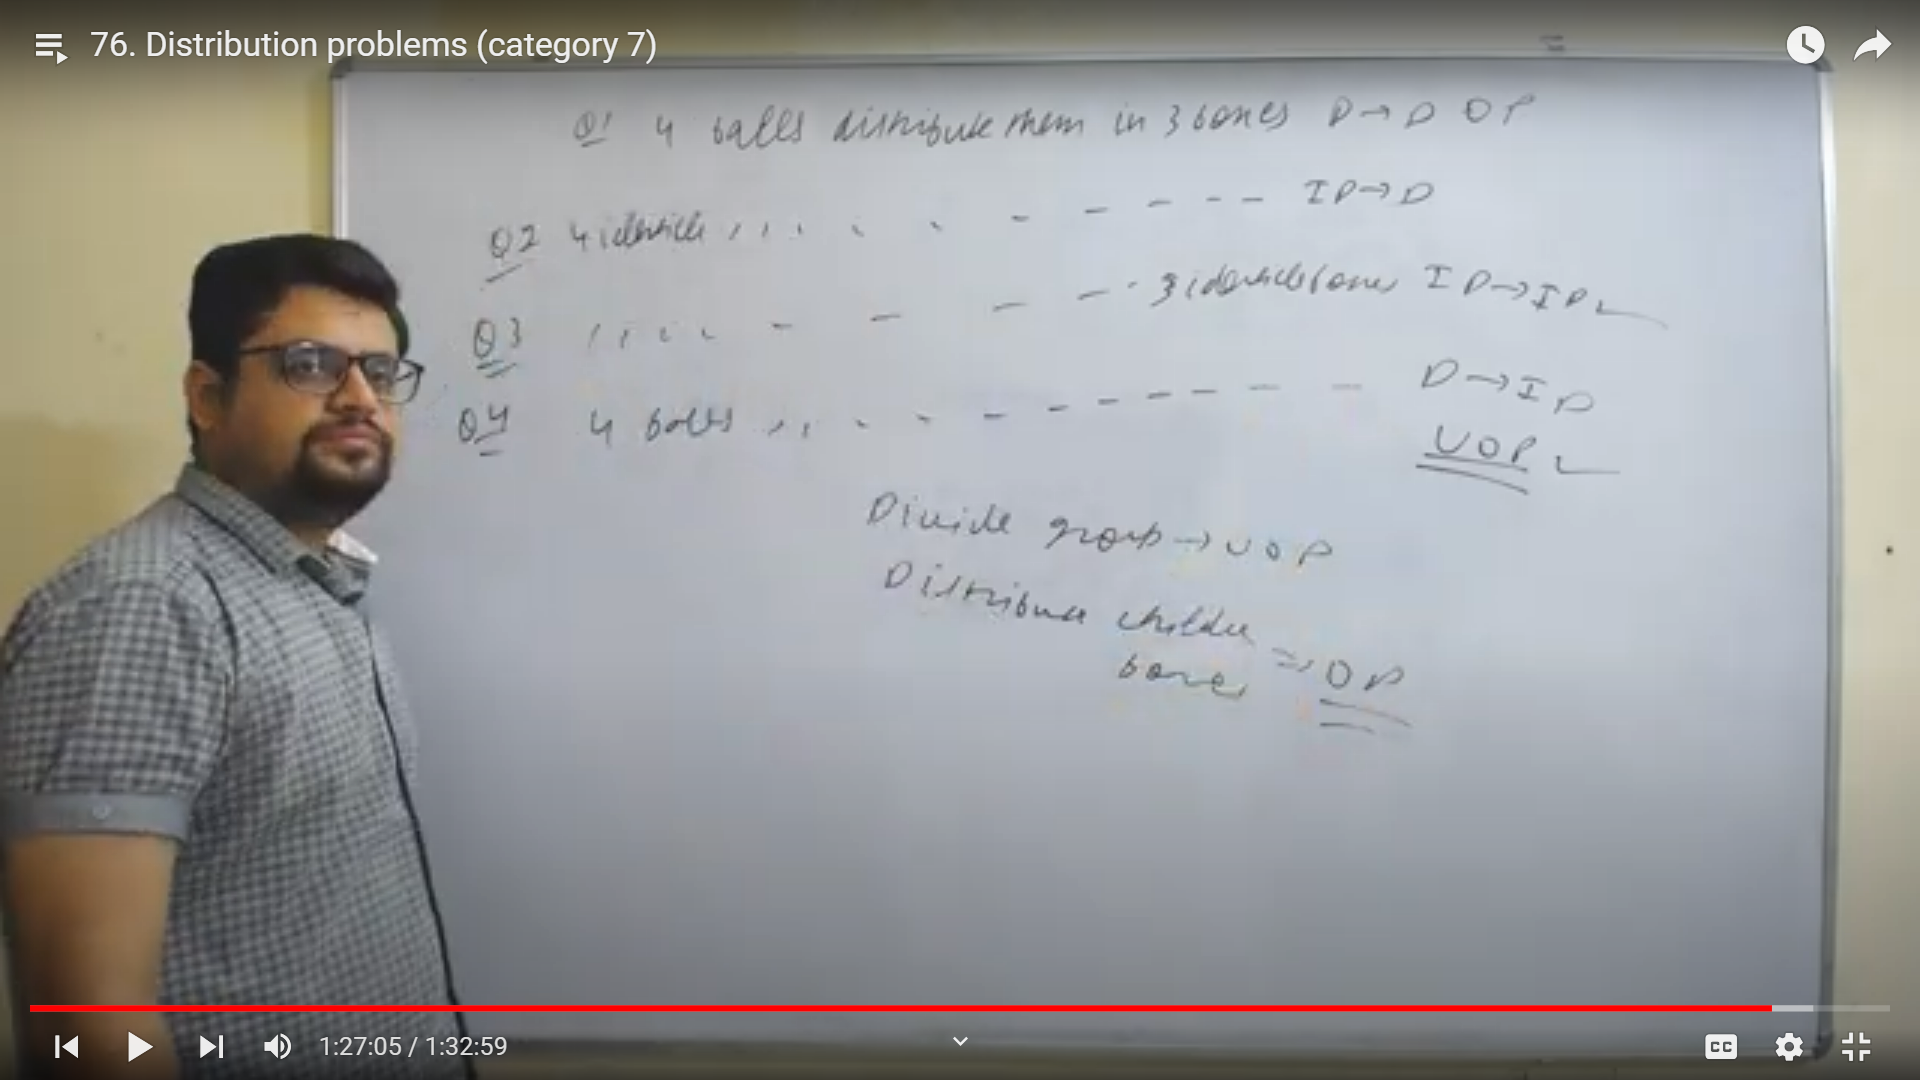 76. Distribution problems (category 7)
Q1 4 balls distribute them in 3 boxes D→D OP
Q2 4 identicle ,, , - - - - - - - ID→D
Q3 ,, ,, - - - - - 3 identicle boxes ID→ID
Q4 4 balls ,, , - - - - - - - - D→ID
UOP
Divide group → UOP
Distribute children
boxes => OP
1:27:05 / 1:32:59
CC